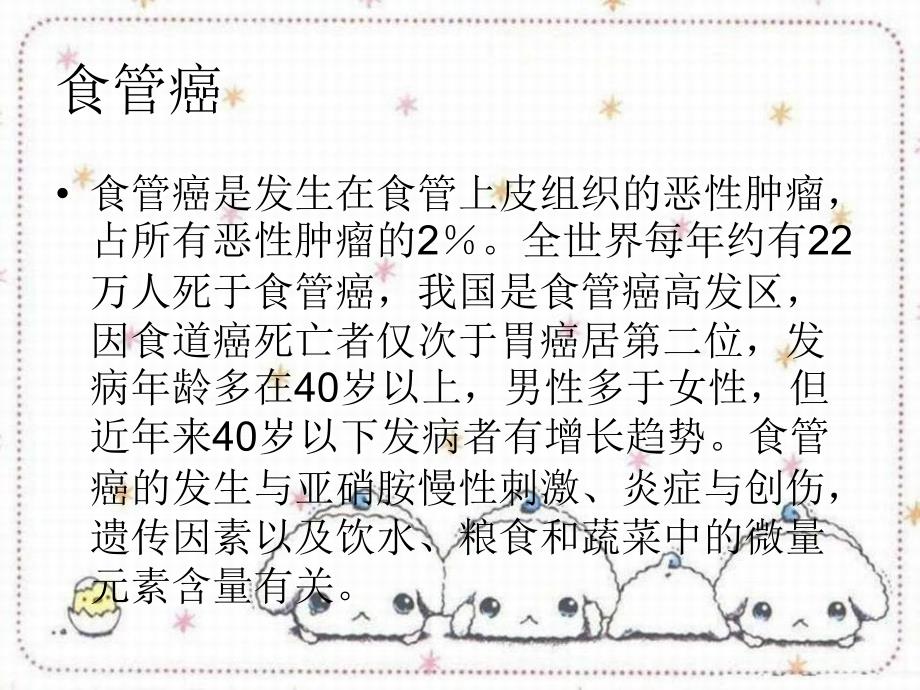 食管癌
• 食管癌是发生在食管上皮组织的恶性肿瘤，
占所有恶性肿瘤的2％。全世界每年约有22
万人死于食管癌，我国是食管癌高发区，
因食道癌死亡者仅次于胃癌居第二位，发
病年龄多在40岁以上，男性多于女性，但
近年来40岁以下发病者有增长趋势。食管
癌的发生与亚硝胺慢性刺激、炎症与创伤，
遗传因素以及饮水、粮食和蔬菜中的微量
元素含量有关。